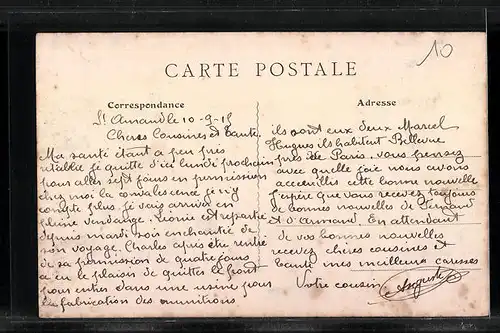 10
CARTE POSTALE
Correspondance
Adresse
St Amand le 10-9-15
Cheres Cousines et tante.
Ma santé étant a peu près
rétablie je quitte d'ici lundi prochain
pour aller sept jours en permission
chez moi la convalescence je n'y
compte plus, je vais arriver en
pleine vendange. Léonie est repartie
depuis mardi soir enchantée de
son voyage. Charles après être rentré
de sa permission de quatre jours
a eu le plaisir de quitter le front
pour entrer dans une usine pour
la fabrication des munitions
ils sont eux deux Marcel
Hugues ils habitent Bellevue
près de Paris. vous pensez
avec quelle joie nous avons
accueilli cette bonne nouvelle
J'espère que vous recevez toujours
de bonnes nouvelles de Fernand
et d'Armand. En attendant
de vos bonnes nouvelles
recevez chères cousines et
tante mes meilleures caresses
Votre cousin Auguste